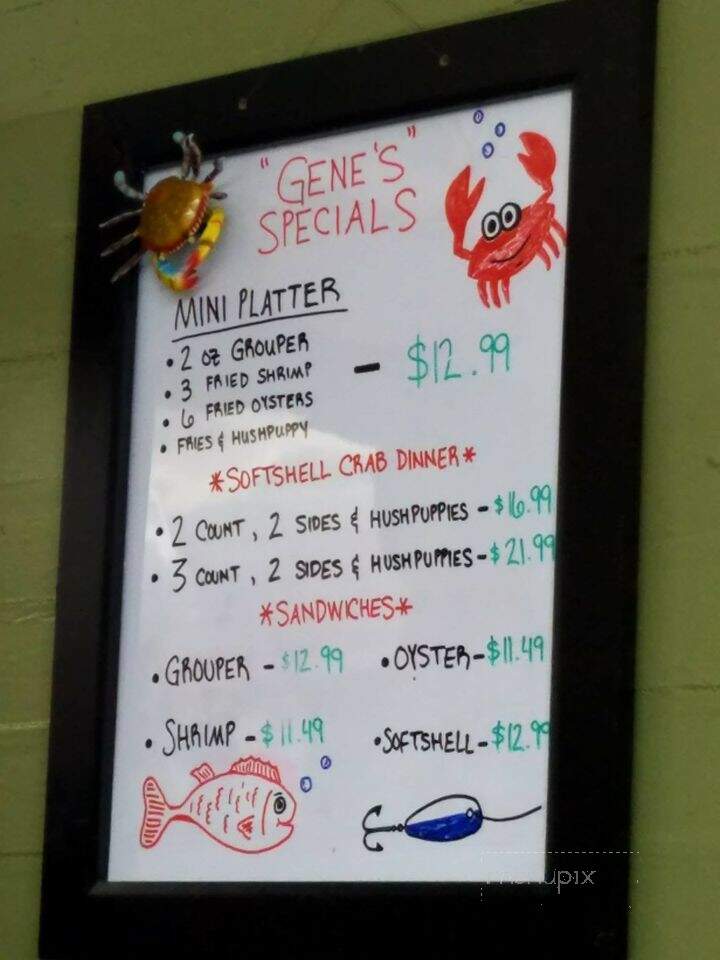 "GENE'S"
SPECIALS
MINI PLATTER
• 2 oz GROUPER
• 3 FRIED SHRIMP - $12.99
• 6 FRIED OYSTERS
• FRIES & HUSHPUPPY
*SOFTSHELL CRAB DINNER*
• 2 COUNT, 2 SIDES & HUSHPUPPIES - $16.99
• 3 COUNT, 2 SIDES & HUSHPUPPIES - $21.99
*SANDWICHES*
• GROUPER - $12.99 • OYSTER - $11.49
• SHRIMP - $11.49 • SOFTSHELL - $12.99
menupix